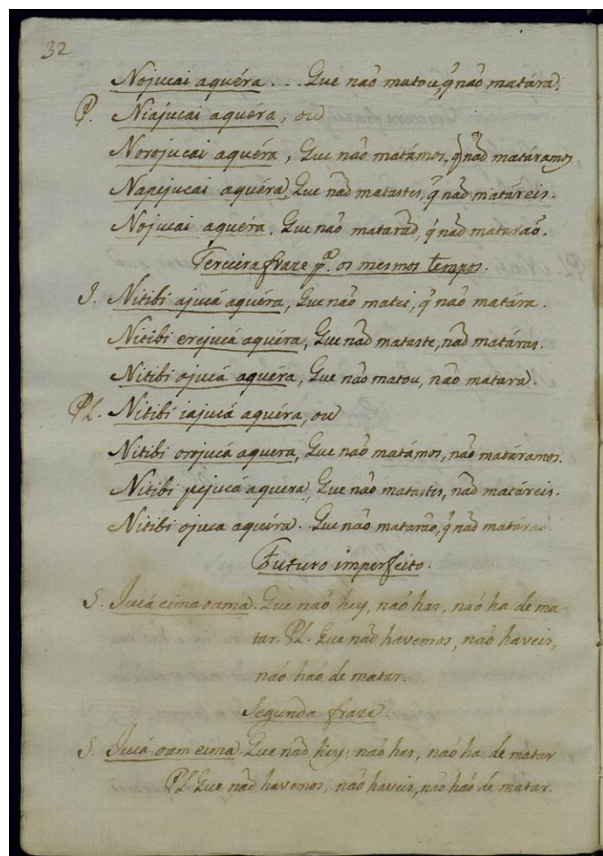 32
Nojucai aquéra . . . Que naõ matou, q̃ naõ matára.
P. Niajucai aquéra, ou
Norojucai aquéra, Que naõ matámos, q̃ naõ matáramos
Napejucai aquéra, Que naõ matastes, q̃ naõ matáreis.
Nojucai aquéra. Que naõ mataraõ, q̃ naõ mataraõ.
Terceira fraze pª. os mesmos tempos.
S. Nitibi ajucá aquéra, Que naõ matei, q̃ naõ matára.
Nitibi erejucá aquéra, Que naõ mataste, naõ matáras.
Nitibi ojucá aquéra, Que naõ matou, naõ matara.
Pl. Nitibi iajucá aquéra, ou
Nitibi orojucá aquera, Que naõ matámos, naõ matáramos.
Nitibi pejucá aquera, Que naõ matastes, naõ matáreis.
Nitibi ojuca aquéra. Que naõ mataraõ, q̃ naõ matáraõ
Futuro imperfeito.
S. Jucá eima oama. Que naõ hey, naõ has, naõ ha de ma-
tar. Pl. Que naõ havemos, naõ haveis,
naõ haõ de matar.
Segunda fraze.
S. Jucá oam eima. Que naõ hey, naõ has, naõ ha de matar
Pl. Que naõ havemos, naõ haveis, naõ haõ de matar.